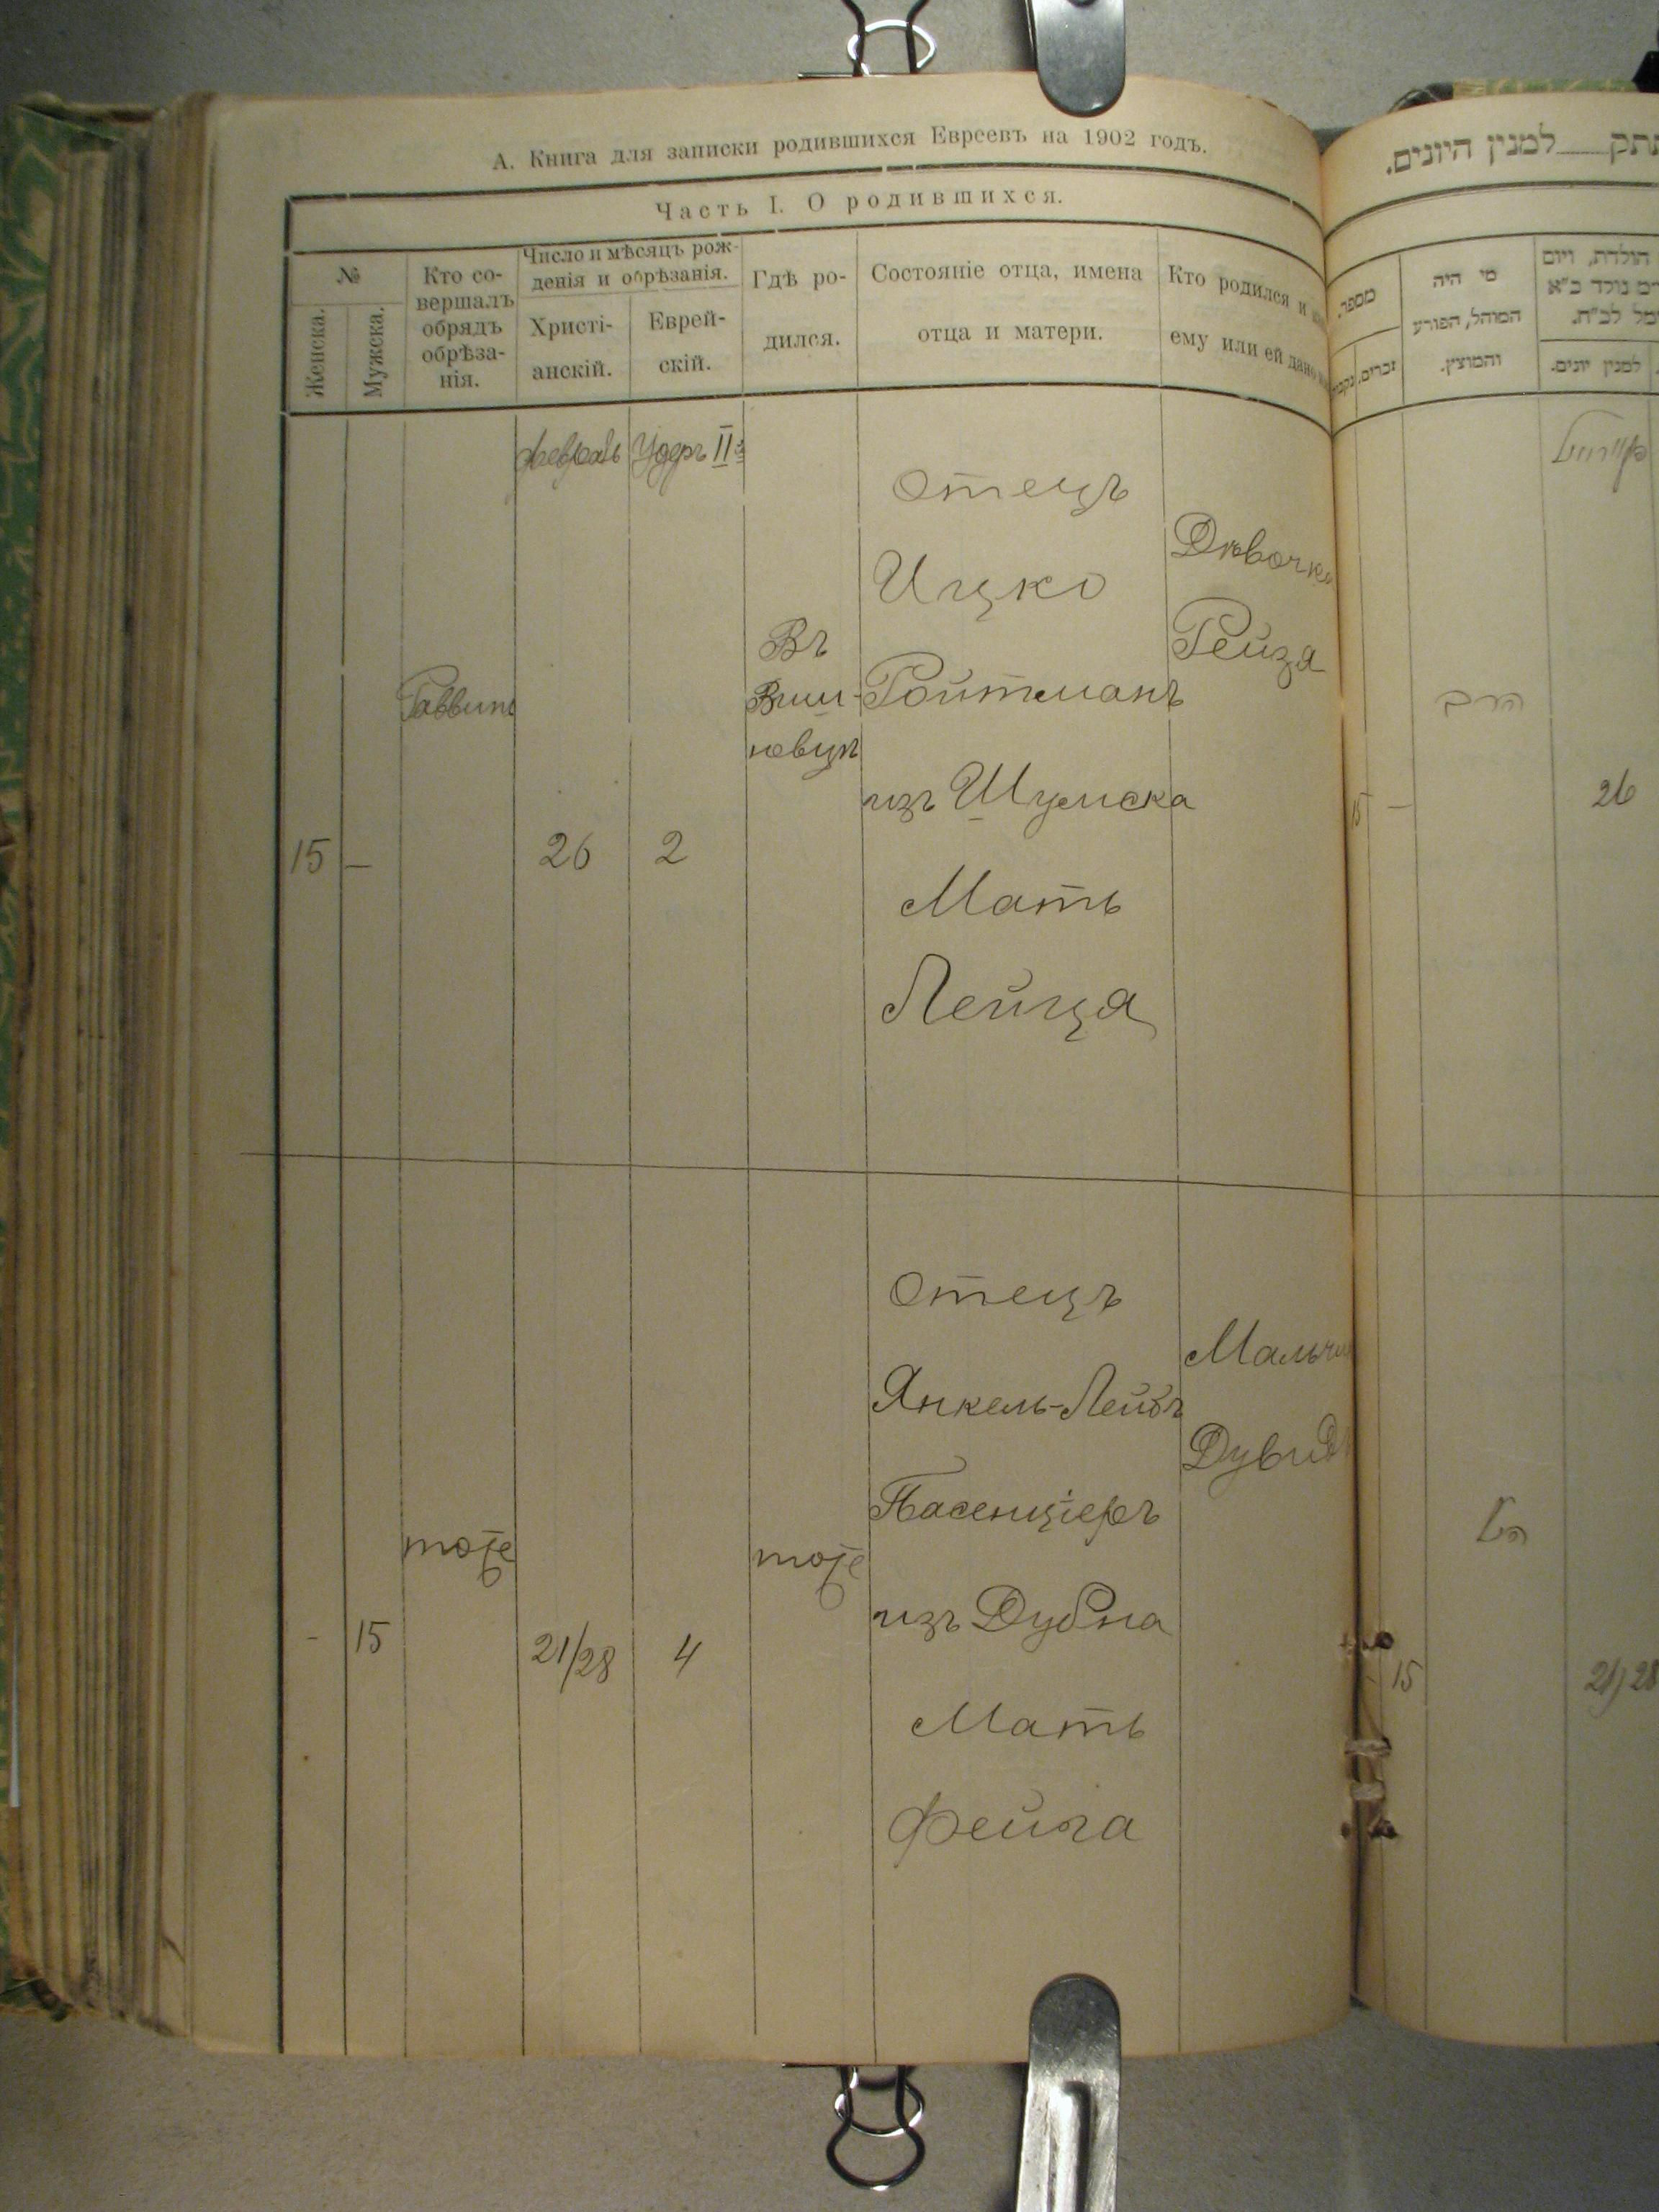 А. Книга для записки родившихся Евреевъ на 1902 годъ.
Часть I. О родившихся.
№
Женска.
Мужска.
Кто со-
вершалъ
обрядъ
обрѣза-
нія.
Число и мѣсяцъ рож-
денія и обрѣзанія.
Христі-
анскій.
Еврей-
скій.
Гдѣ ро-
дился.
Состояніе отца, имена
отца и матери.
Кто родился и
ему или ей дано
Февраль
Удеръ II
15
—
Раввинъ
26
2
Въ
Виш-
невцѣ
Отецъ
Ицко
Ройтманъ
изъ Шумска
Мать
Лейца
Дѣвочка
Рейзя
-
15
тоже
21/28
4
тоже
Отецъ
Янкель-Лейбъ
Пасенціеръ
изъ Дубна
Мать
Фейга
Мальчи
Дувидъ
למנין היונים.
מספר.
זכרים.
מי היה
המוהל, הפורע
והמוצץ.
הולדת, ויום
למנין יונים.
15
—
הרב
26
15
הנ״ל
21/28